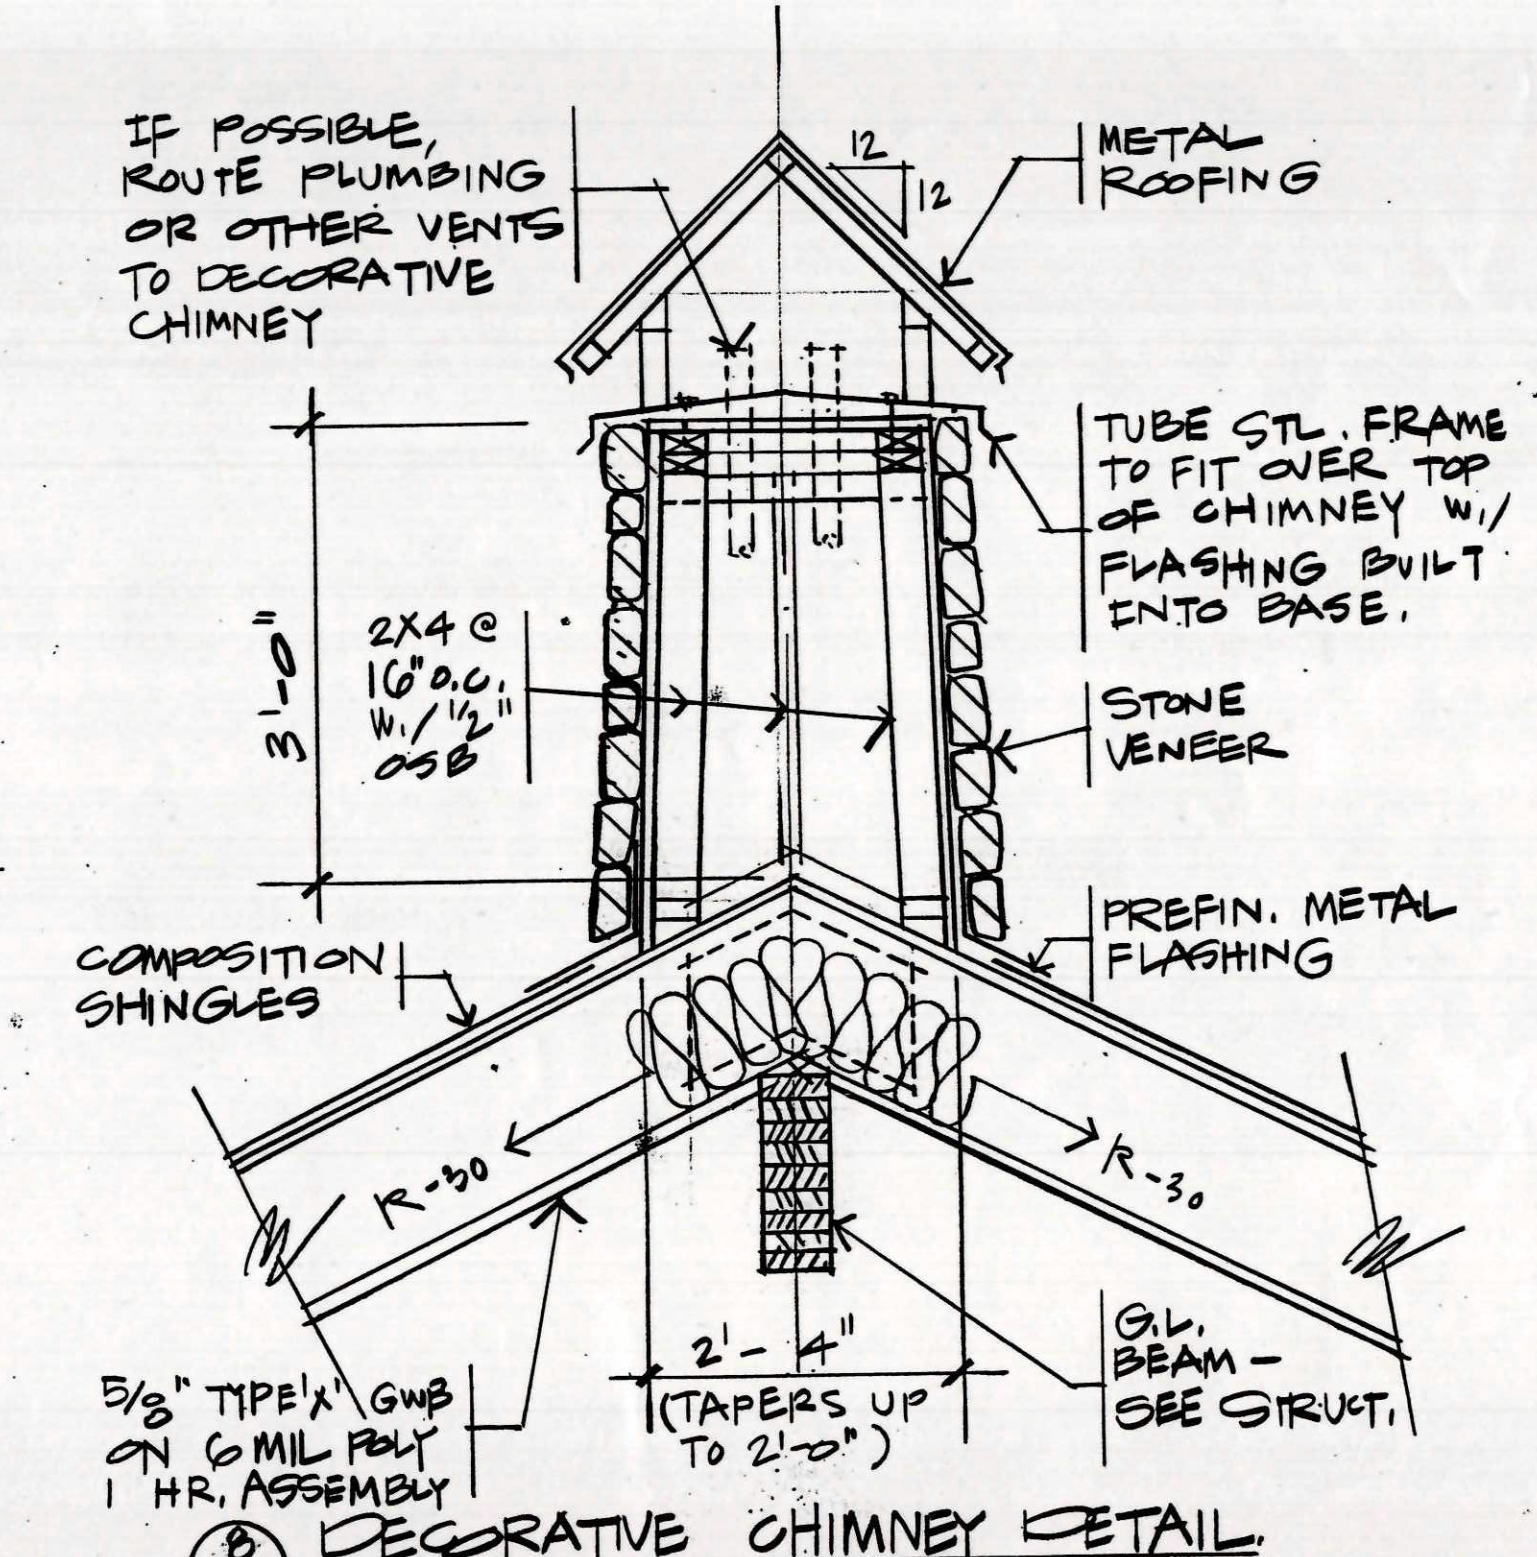 IF POSSIBLE,
ROUTE PLUMBING
OR OTHER VENTS
TO DECORATIVE
CHIMNEY
12
12
METAL
ROOFING
TUBE STL. FRAME
TO FIT OVER TOP
OF CHIMNEY W./
FLASHING BUILT
INTO BASE.
3'-0"
2X4 @
16" O.C.
W./ 1/2"
OSB
STONE
VENEER
PREFIN. METAL
FLASHING
COMPOSITION
SHINGLES
R-30
R-30
2'-4"
(TAPERS UP
TO 2'-0")
G.L.
BEAM -
SEE STRUCT.
5/8" TYPE 'X' GWB
ON 6 MIL POLY
1 HR. ASSEMBLY
8
DECORATIVE CHIMNEY DETAIL.